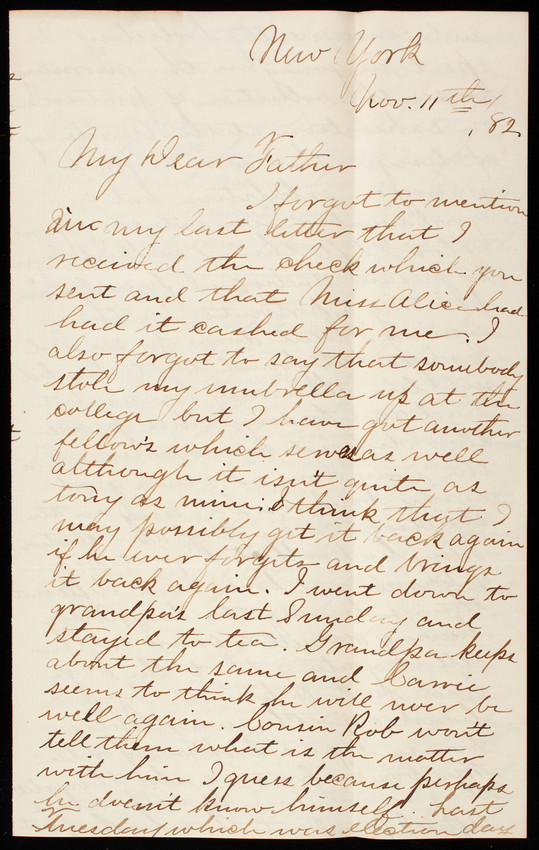 New York
Nov. 11th / 82
My Dear Father
I forgot to mention
in my last letter that I
received the check which you
sent and that Miss Alice had
had it cashed for me. I
also forgot to say that somebody
stole my umbrella up at the
college but I have got another
fellow's which serves as well
although it isn't quite as
tony as mine. I think that I
may possibly get it back again
if he ever forgets and brings
it back again. I went down to
grandpa's last Sunday and
stayed to tea. Grandpa keeps
about the same and Carrie
seems to think he will never be
well again. Cousin Rob won't
tell them what is the matter
with him I guess because perhaps
he doesn't know himself. Last
Tuesday which was election day